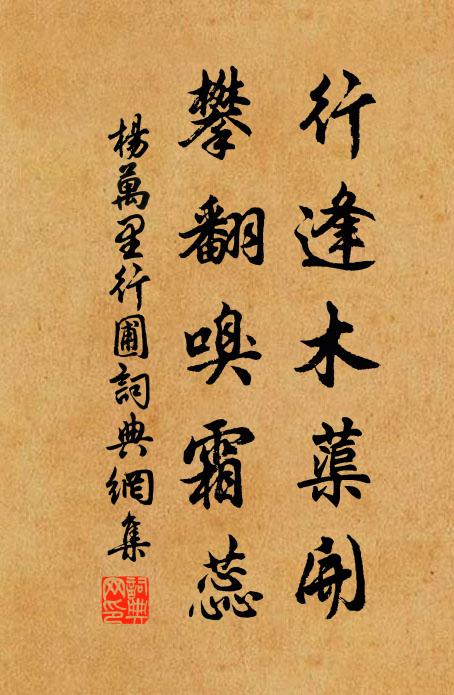 行逢木蕖開
攀翻嗅霜蕊
楊萬里行圃詞典網集
詞典网印